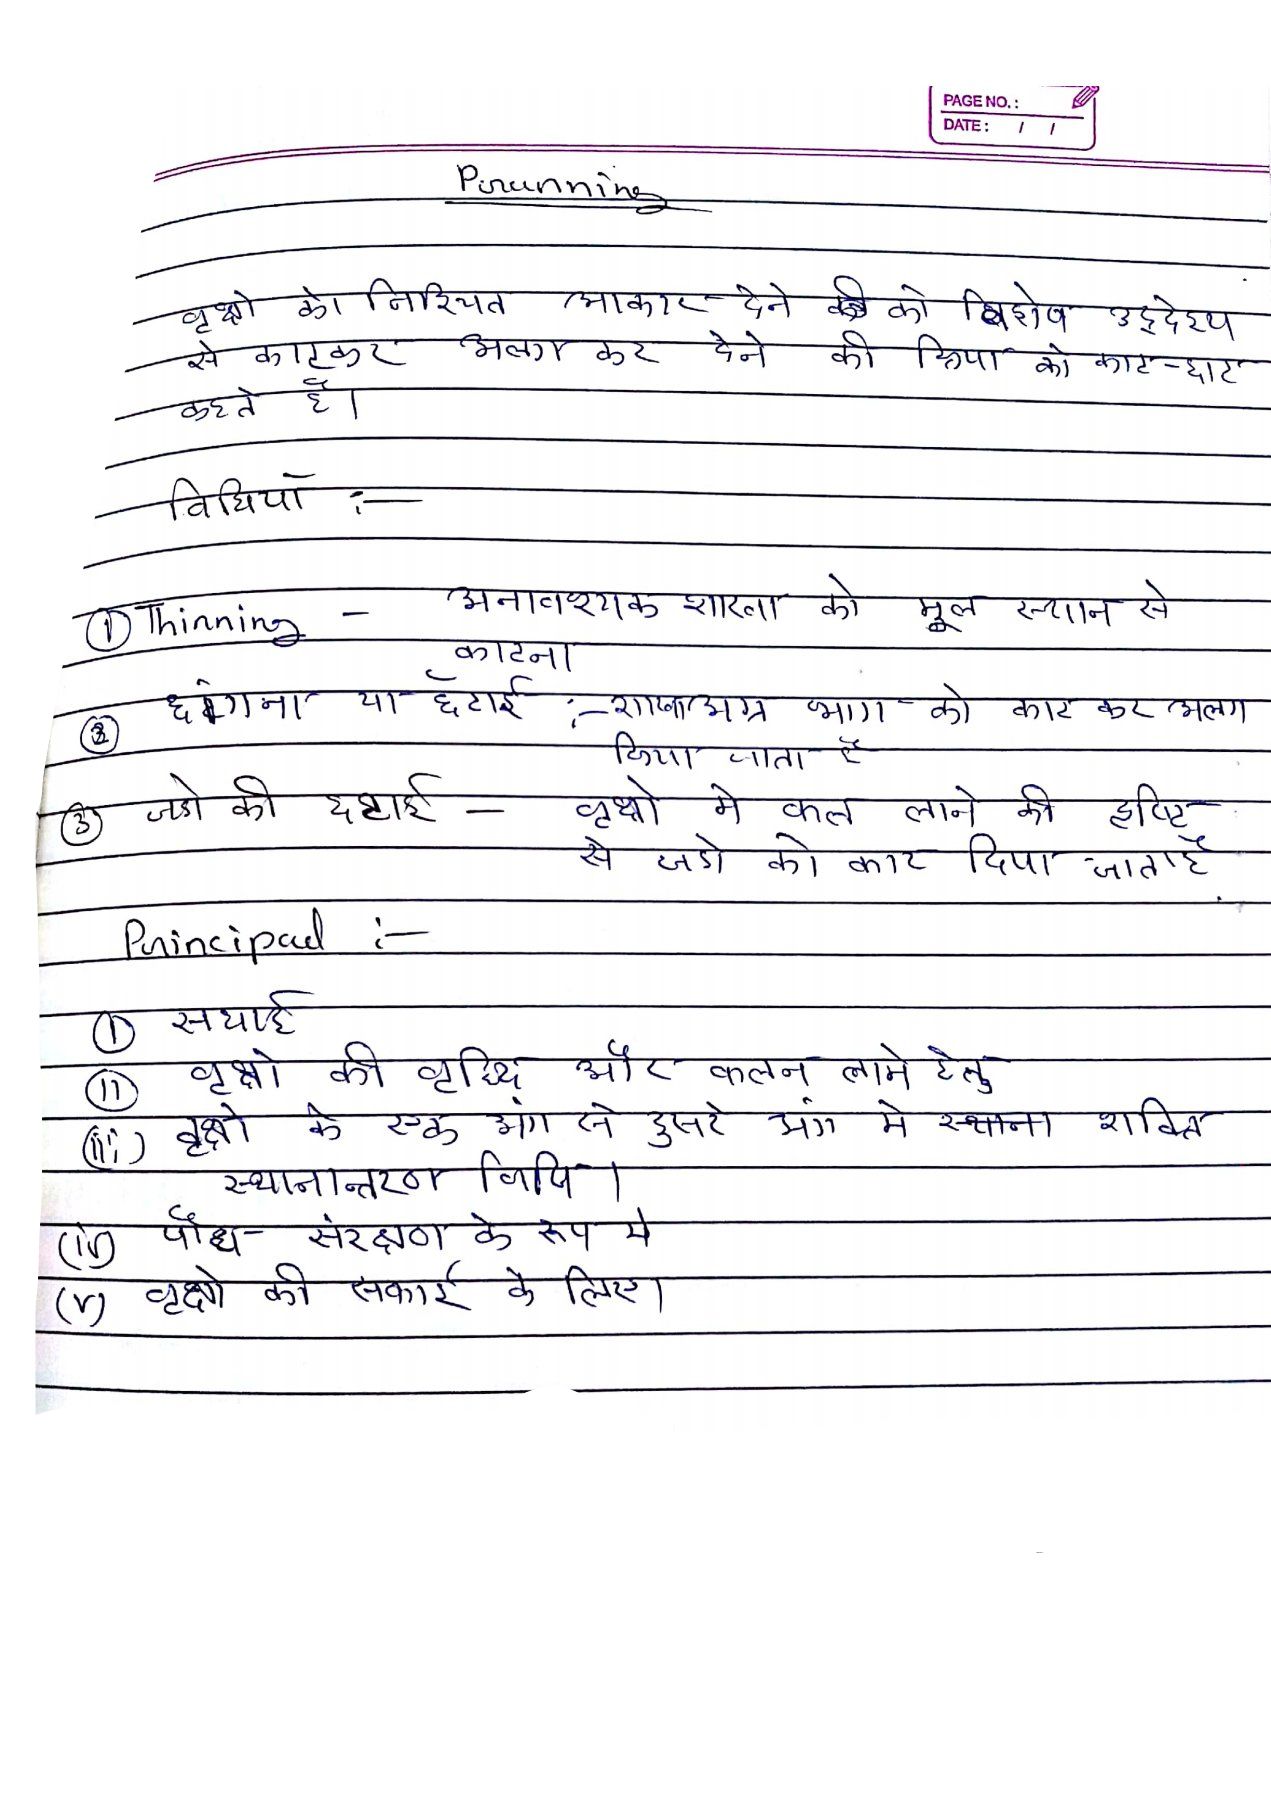 PAGE NO.:
DATE: / /
Prunning
वृक्षो को निश्चित आकार देने को विशेष उद्देश्य
से काटकर अलग कर देने की क्रिया को काट-छाट
कहते हैं।
विधियाँ :-
① Thinning - अनावश्यक शाखा को मूल स्थान से
काटना
② छांगना या छँटाई :- शाखा अग्र भाग को काट कर अलग
किया जाता है
③ जडो की छटाई - वृक्षो मे फल लाने की दृष्टि
से जडो को काट दिया जाता है
Principal :-
① सधाई
⑪ वृक्षो की वृध्दि और फलन लाने हेतु
(iii) वृक्षो के एक अंग से दुसरे अंग मे शक्ति
स्थानान्तरण विधि।
(iv) पौध संरक्षण के रूप मे
(v) वृक्षो की सफाई के लिए।